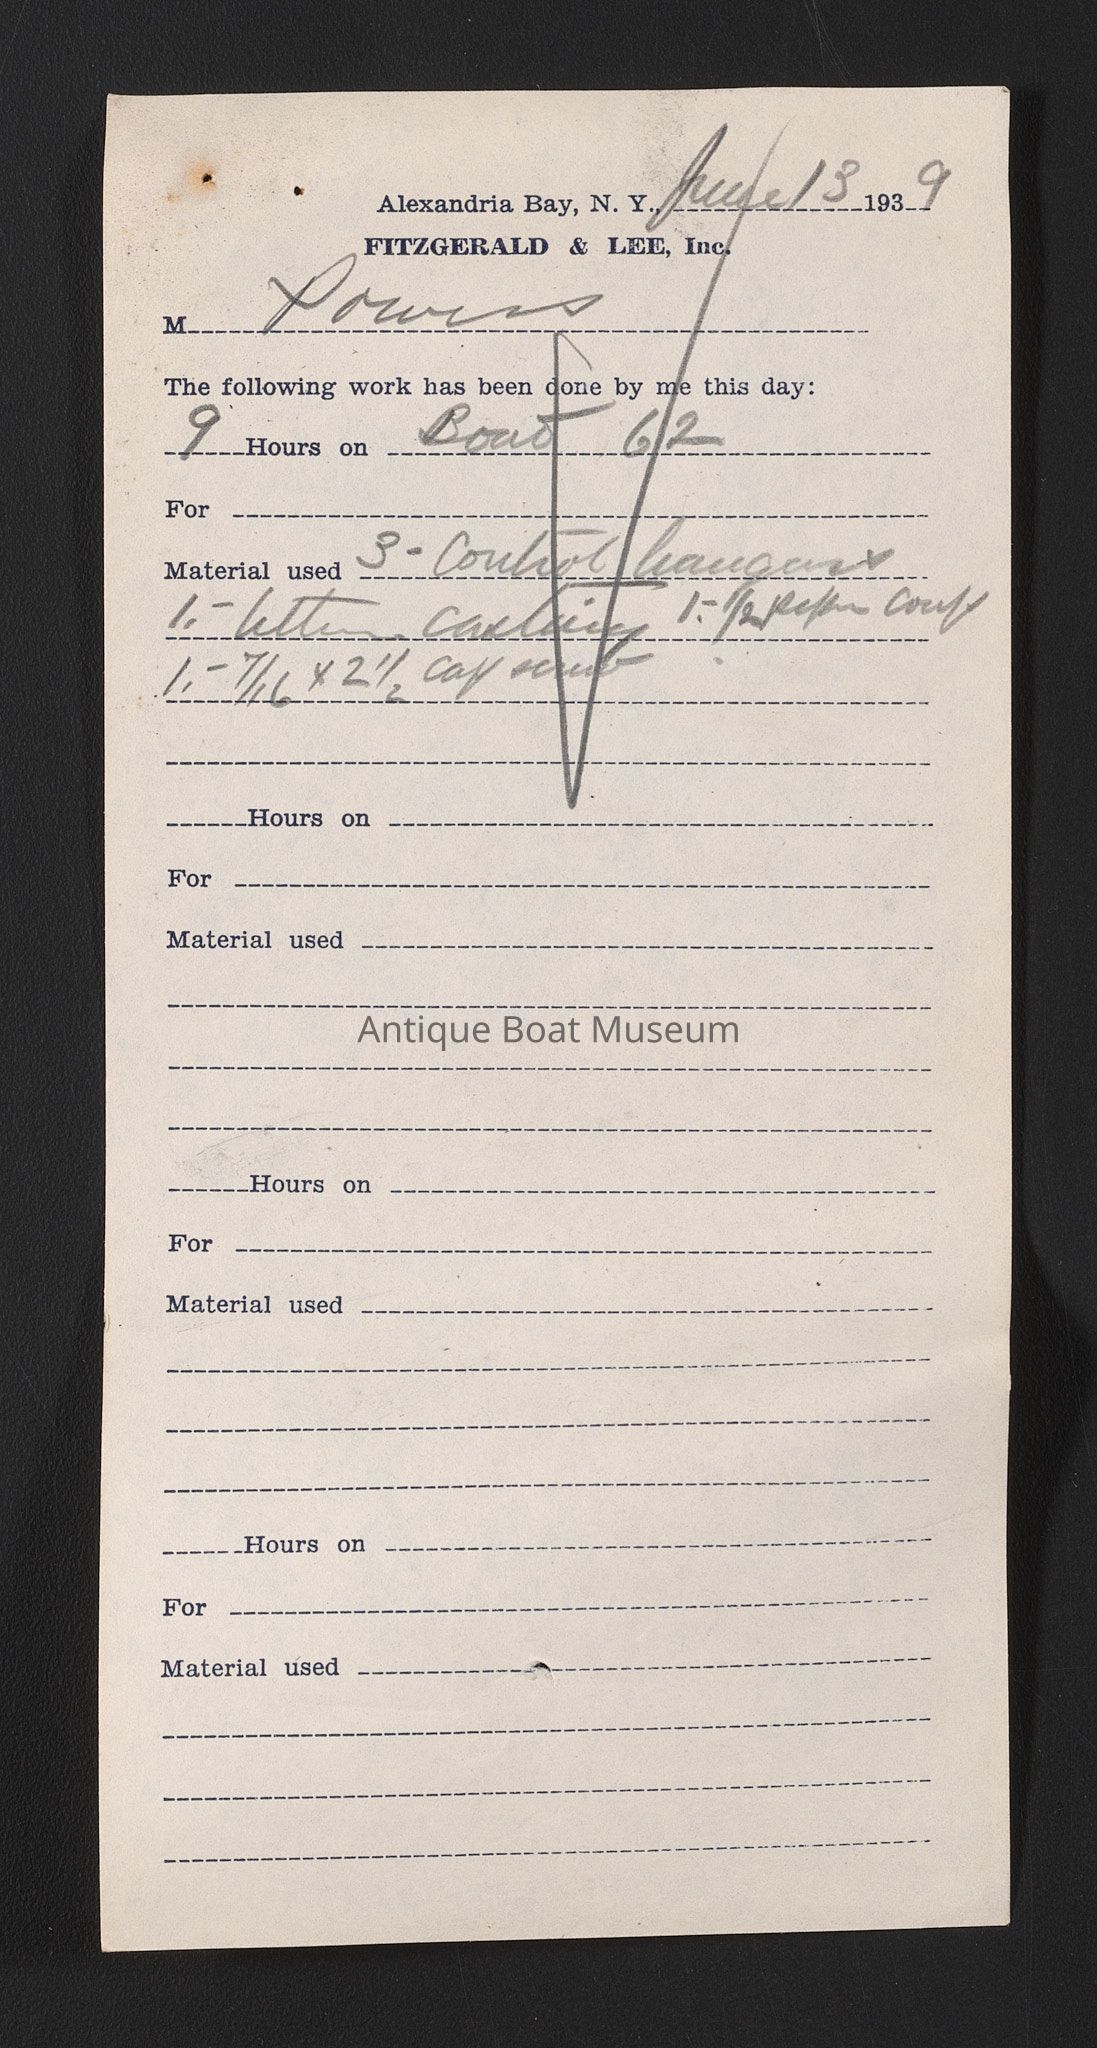 Alexandria Bay, N. Y., June 13 1939
FITZGERALD & LEE, Inc.
M Powers
The following work has been done by me this day:
9 Hours on Boat 62
For
Material used 3- Control hangers
1.- casting 1.- 1/2
1.- 7/16 x 2 1/2 cap screw
Hours on
For
Material used
Antique Boat Museum
Hours on
For
Material used
Hours on
For
Material used